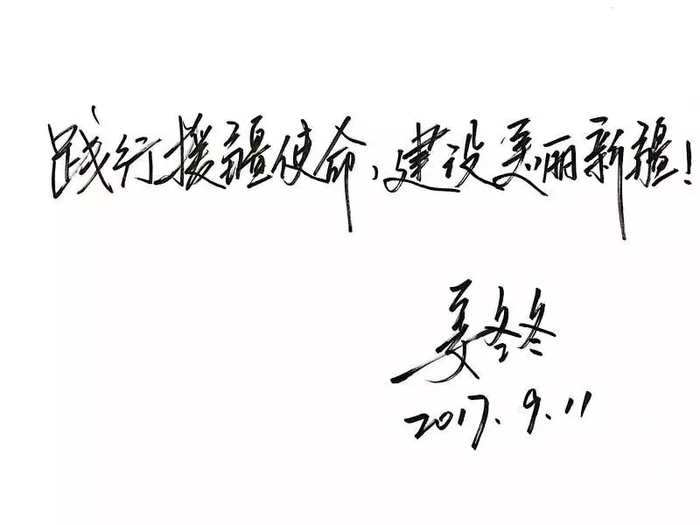 践行援疆使命,建设美丽新疆!
姜冬冬
2017.9.11